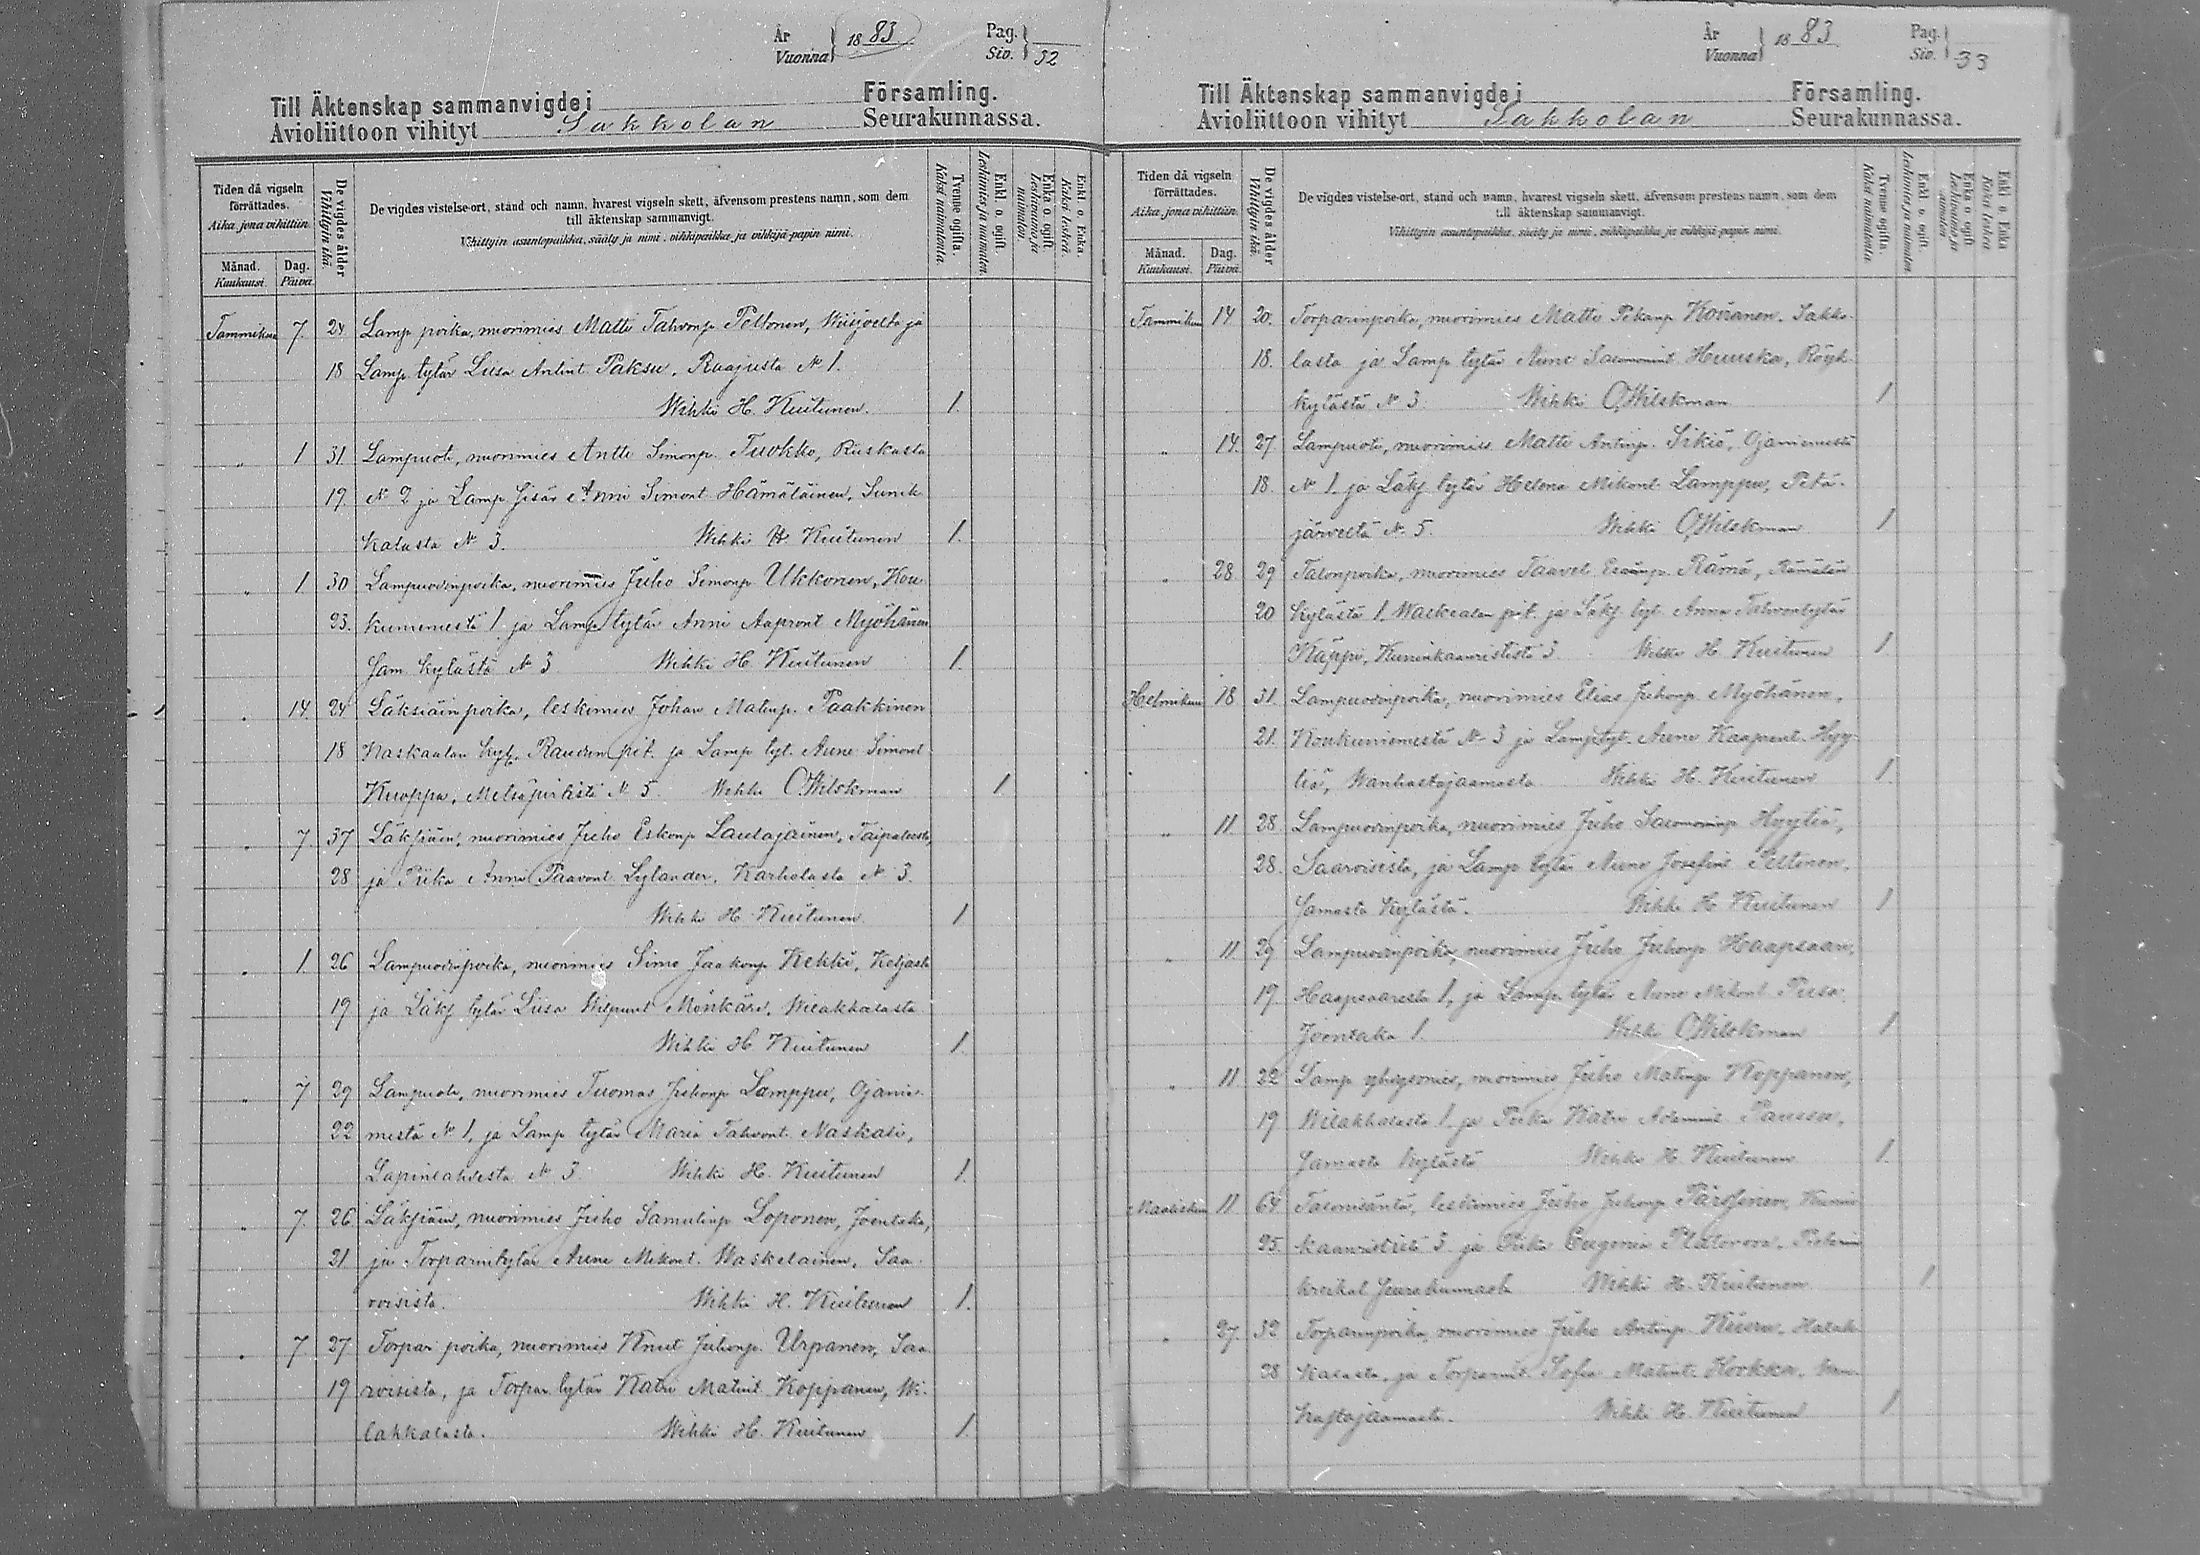 År
Vuonna } 1883
Pag.
Siv. } 32
Till Äktenskap sammanvigde i Församling.
Avioliittoon vihityt Sakkolan Seurakunnassa.
Tiden då vigseln förrättades.
Aika, jona vihittiin.
Månad. Dag.
Kuukausi. Päivä.
De vigdes ålder
Vihittyin ikä.
De vigdes vistelse-ort, stånd och namn, hvarest vigseln skett, äfvensom prestens namn, som dem
till äktenskap sammanvigt.
Vihittyin asuntopaikka, sääty ja nimi, vihkipaikka ja vihkijä-papin nimi.
Tvenne ogifta.
Kaksi naimatonta.
Enkl. o. ogift.
Leskimies ja naimaton.
Enka o. ogift.
Leskivaimo ja naimaton.
Enkl. o. Enka.
Kaksi leskeä.
Tammikuu 7. 24. Lamp. poika, nuorimies Matti Tahvonp. Peltonen, Wiisjoelta ja
18 Lamp. tytär Liisa Antint. Paksu, Raajusta № 1.
Wihki H. Kuitunen. 1.
„ 1 31 Lampuoti, nuorimies Antti Simonp. Tuokko, Riiskasta
19 № 2 ja Lamp. sisar Anni Simont. Hämäläinen, Sunik-
kalasta № 3. Wihki H. Kuitunen 1.
„ 1 30 Lampuodinpoika, nuorimies Juho Simonp. Ukkonen, Kou-
23. kuniemestä 1 ja Lamp. tytär Anni Aapront. Myöhänen
sam. kylästä № 3 Wihki H. Kuitunen 1.
1 „ 14. 24 Läksiäin poika, leskimies Johan Matinp. Paakkinen
18 Kaskaalan kyl. Raudun pit. ja Lamp. tyt. Aune Simont.
Kuoppa, Metsäpirtistä № 5. Wihki O Wilskman 1
„ 7. 37 Läksiäin, nuorimies Juho Eskonp. Lautajainen, Taipaleesta,
28 ja Piika Anni Paavont. Lylander, Karholasta № 3.
Wihki H. Kuitunen 1.
„ 1. 26 Lampuodinpoika, nuorimies Simo Jaakonp. Kekki, Keljasta
19 ja Läks. tytär Liisa Wilpunt. Mönkäre, Wilakkalasta
Wihki H. Kuitunen 1.
„ 7. 29 Lampuoti, nuorimies Tuomas Juhonp. Lamppu, Ojanie-
22 mestä № 1, ja Lamp. tytär Maria Tahvont. Naskali,
Lapinlahdesta № 3. Wihki H. Kuitunen 1.
„ 7. 26 Läksiäin, nuorimies Juho Samulinp. Loponen, Joentaka,
21 ja Torparintytär Aune Mikont. Waskelainen, Saa-
roisista. Wihki H. Kuitunen 1.
„ 7 27 Torpar. poika, nuorimies Knut Juhonp. Urpanen, Saa
19 roisista, ja Torpar. tytär Katri Matint. Koppanen, Wi-
lakkalasta. Wihki H. Kuitunen 1.
År
Vuonna } 1883
Pag.
Siv. } 33
Till Äktenskap sammanvigde i Församling.
Avioliittoon vihityt Sakkolan Seurakunnassa.
Tiden då vigseln förrättades.
Aika, jona vihittiin.
Månad. Dag.
Kuukausi. Päivä.
De vigdes ålder
Vihittyin ikä.
De vigdes vistelse-ort, stånd och namn, hvarest vigseln skett, äfvensom prestens namn, som dem
till äktenskap sammanvigt.
Vihittyin asuntopaikka, sääty ja nimi, vihkipaikka ja vihkijä-papin nimi.
Tvenne ogifta.
Kaksi naimatonta.
Enkl. o. ogift.
Leskimies ja naimaton.
Enka o. ogift
Leskivaimo ja naimaton
Enkl. o. Enka
Kaksi leskeä
Tammikuu 14 20. Torparinpoika, nuorimies Matti Pekanp. Koiranen, Sakko-
18. lasta ja Lamp. tytär Aune Salomonint. Huuska, Röyk-
kylästä № 3 Wihki O Wilskman 1
„ 14. 27 Lampuoti, nuorimies Matti Antinp. Sikiö, Ojaniemestä
18. № 1 ja Läks. tytär Helena Mikont. Lamppu, Petä-
järveltä № 5. Wihki O Wilskman 1
„ 28 29 Talonpoika, nuorimies Taavet Rämä, Rämälän
20 kylästä 1, Walkealan pit. ja Läks. tyt. Anna Tahvontytär
Käppi, Kuninkaanrististä 3 Wihki H. Kuitunen 1
Helmikuu 18 31. Lampuodinpoika, nuorimies Elias Juhonp. Myöhänen,
21. Koukuniemestä № 3 ja Lamp. tyt. Aune Kaapront. Hyy-
tiä, Wanhastajaamasta Wihki H. Kuitunen 1.
„ 11. 28 Lampuodinpoika, nuorimies Juho Salomoninp. Hyytiä,
28. Saaroisista, ja Lamp. tytär Aune Josefint. Peltonen,
samasta kylästä. Wihki H. Kuitunen 1
„ 11 29 Lampuodinpoika, nuorimies Juho Juhonp. Haapsaari,
19. Haapsaaresta 1, ja Lamp. tytär Aune Mikont. Pusa
Joentaka 1. Wihki O Wilskman 1
„ 11 22 Lamp. yhtysmies, nuorimies Juho Matinp. Koppanen,
19 Wilakkalasta 1 ja Piika Katri Paussu,
samasta kylästä Wihki H. Kuitunen 1.
Maaliskuu 11 64 Talonisäntä, leskimies Juho Juhonp. Pärssinen, Kunin-
25. kaanrististä 3 ja Piika Eugenia
kreikal. seurakunnasta Wihki H. Kuitunen 1
„ 27. 32 Torparinpoika, nuorimies Juho Antinp. Kiuru, Halak-
28 kalasta, ja Torparint. Sofia Matint. Korkka, Wan-
hastajaamasta. Wihki H. Kuitunen 1